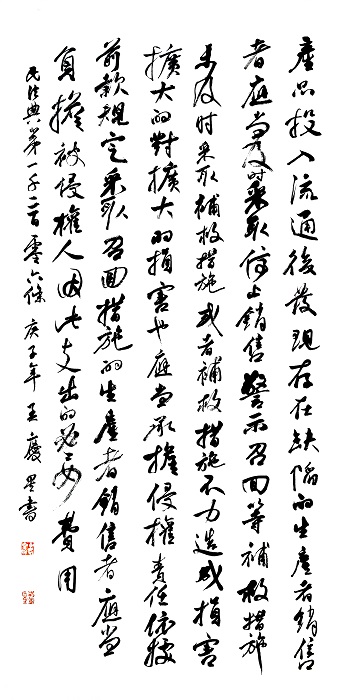 產品投入流通後發現存在缺陷的生產者銷售
者應當及时采取停止銷售警示召回等補救措施
未及时采取補救措施或者補救措施不力造成損害
擴大的對擴大的損害也應當承擔侵權責任依據
前款規定采取召回措施的生產者銷售者應當
負擔被侵權人因此支出的必要費用
民法典第一千二百零六條 庚子年 王慶 書